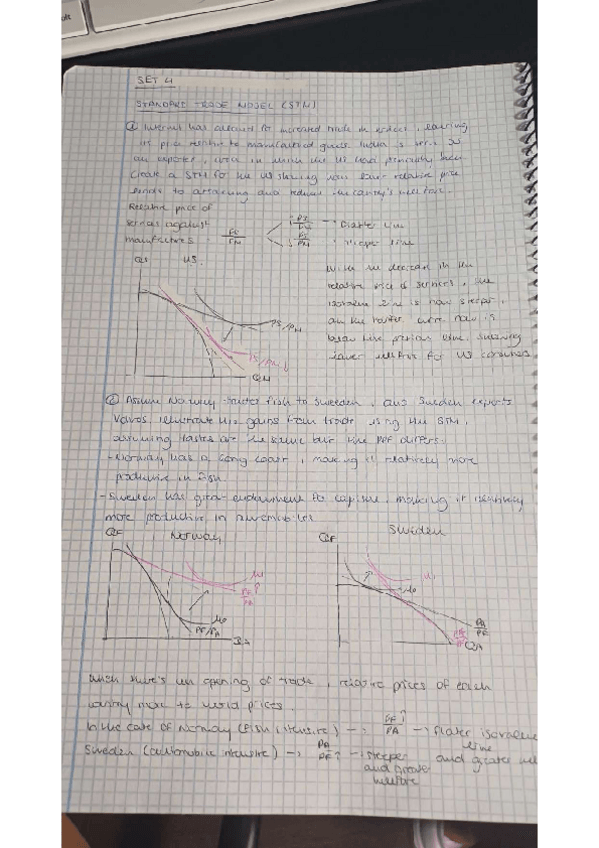 SET 4
STANDARD TRADE MODEL (STM)
① Internet has allowed for increased trade in services, lowering
its price relative to manufactured goods. India is
an exporter, area in which the US had primarily been.
Create a STM for the US showing how relative price
tends to and reduce the country's welfare.
Relative price of
services against
manufactures
PS
PM
PS
PM
→ Flatter line
PS
PM
→ steeper line
QS
US
PS/PM
PS/PM ↓
QM
With the decrease in the
relative price of services, the
isovalue line is now steeper,
and the curve now is
below the previous one, showing
lower welfare for US consumers
② Assume Norway trades fish to Sweden, and Sweden exports
Volvos, illustrate the gains from trade using the STM,
assuming tastes are the same but the PPF differs.
- Norway has a long coast, making it relatively more
productive in fish.
- Sweden has great endowment to capital, making it relatively
more productive in automobiles
QF
Norway
μ1
PF
PA
μ0
PF/PA
QA
QF
Sweden
μ1
μ0
PA
PF
PA
QA
When there's an opening of trade, relative prices of each
country move to world prices.
In the case of Norway (fish intensive) → PF↑
PA
→ flatter isovalue
line
Sweden (automobile intensive) → PA
PF↑
→ steeper and greater
and greater
welfare